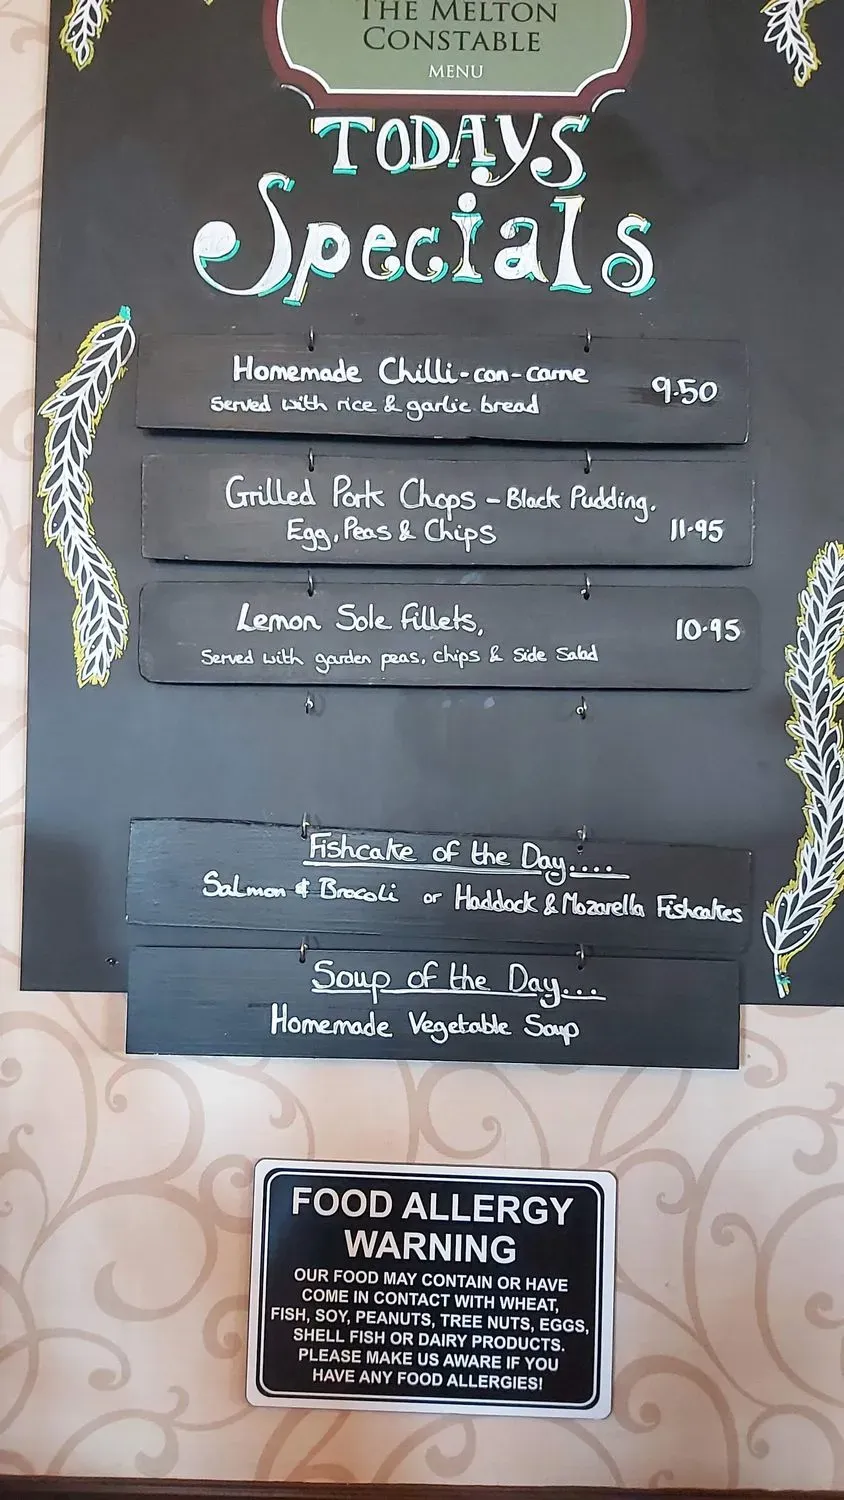 THE MELTON
CONSTABLE
MENU
TODAYS
Specials
Homemade Chilli-con-carne
9.50
Served with rice & garlic bread
Grilled Pork Chops - Black Pudding.
Egg, Peas & Chips
11.95
Lemon Sole Fillets,
10.95
Served with garden peas, chips & Side Salad
Fishcake of the Day....
Salmon & Brocoli or Haddock & Mozarella Fishcakes
Soup of the Day...
Homemade Vegetable Soup
FOOD ALLERGY
WARNING
OUR FOOD MAY CONTAIN OR HAVE
COME IN CONTACT WITH WHEAT,
FISH, SOY, PEANUTS, TREE NUTS, EGGS,
SHELL FISH OR DAIRY PRODUCTS.
PLEASE MAKE US AWARE IF YOU
HAVE ANY FOOD ALLERGIES!